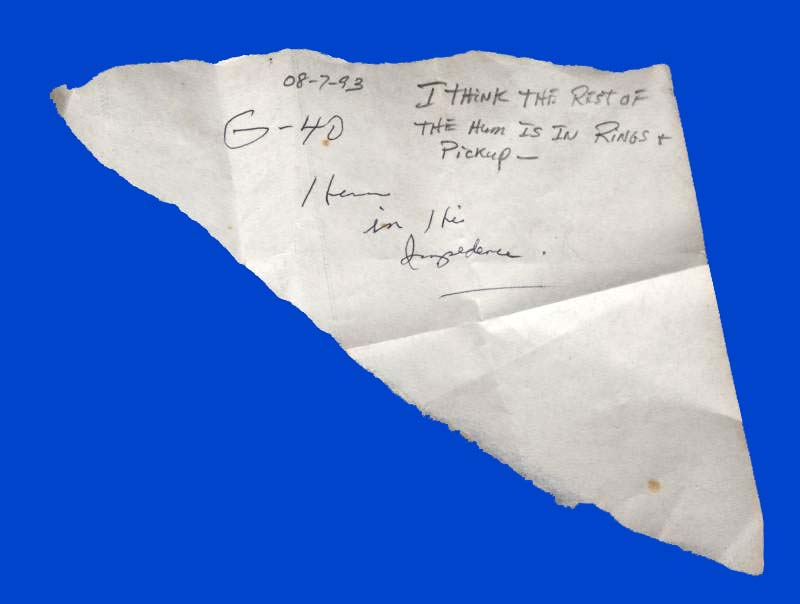 08-7-93
G-40
Hum
in Hi
Impedence.
I THINK THE REST OF
THE HUM IS IN RINGS +
Pickup —